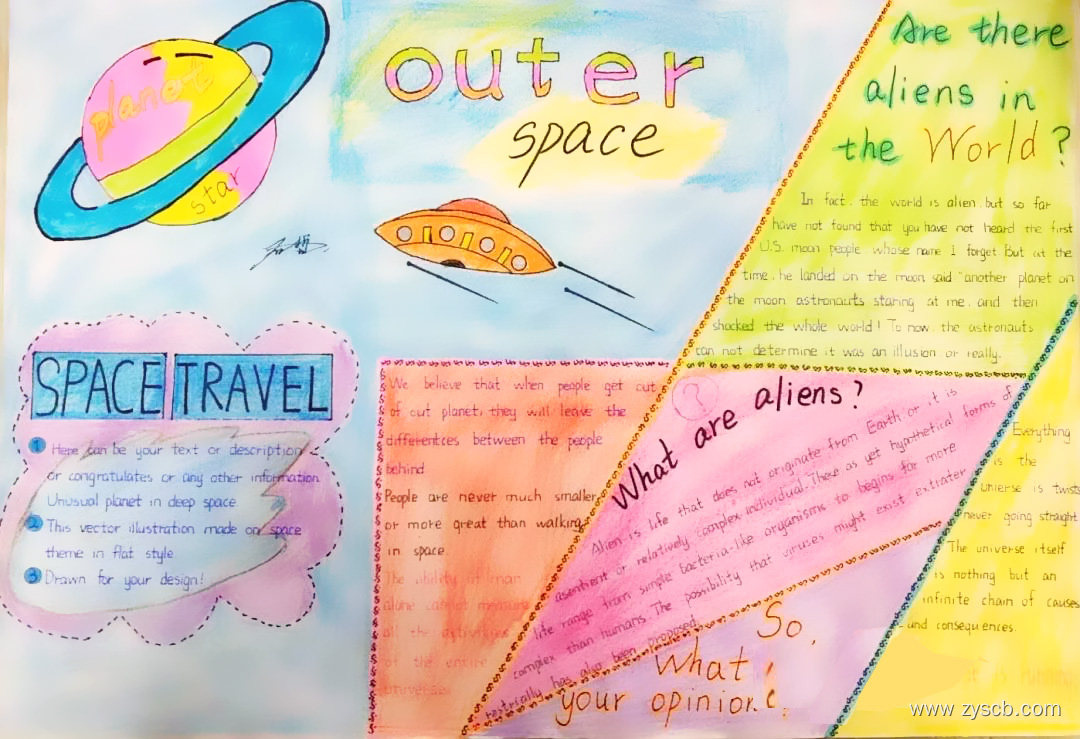 planet
star
outer
space
SPACE TRAVEL
1 Here can be your text or description
or congratulates or any other information.
Unusual planet in deep space
2 This vector illustration made on space
theme in flat style.
3 Drawn for your design!
We believe that when people get out
of out planet, they will leave the
differentces between the people
behind
People are never much smaller
or more great than walking
in space.
The ability of man
alone cannot measure
all the
of the entire
universe
Are there
aliens in
the World?
In fact, the world is alien, but so far
have not found that you have not heard the first
U.S. moon people whose name I forget But at the
time, he landed on the moon said "another planet on
the moon astronauts staring at me, and then
shocked the whole world! To now, the astronauts
can not determine it was an illusion or really.
?
What are aliens?
Alien is life that does not originate from Earth or it is
asentient or relatively complex individual. These as yet hypothetical forms of
life range from simple bacteria-like organisms to begins far more
complex than humans. The possibility that viruses might exist extrater
restrically has also been proposed.
So,
what
your opinion?
Everything
is the
universe is twists
never going straight
The universe itself
is nothing but an
infinite chain of causes
and consequences.
www.zyscb.com